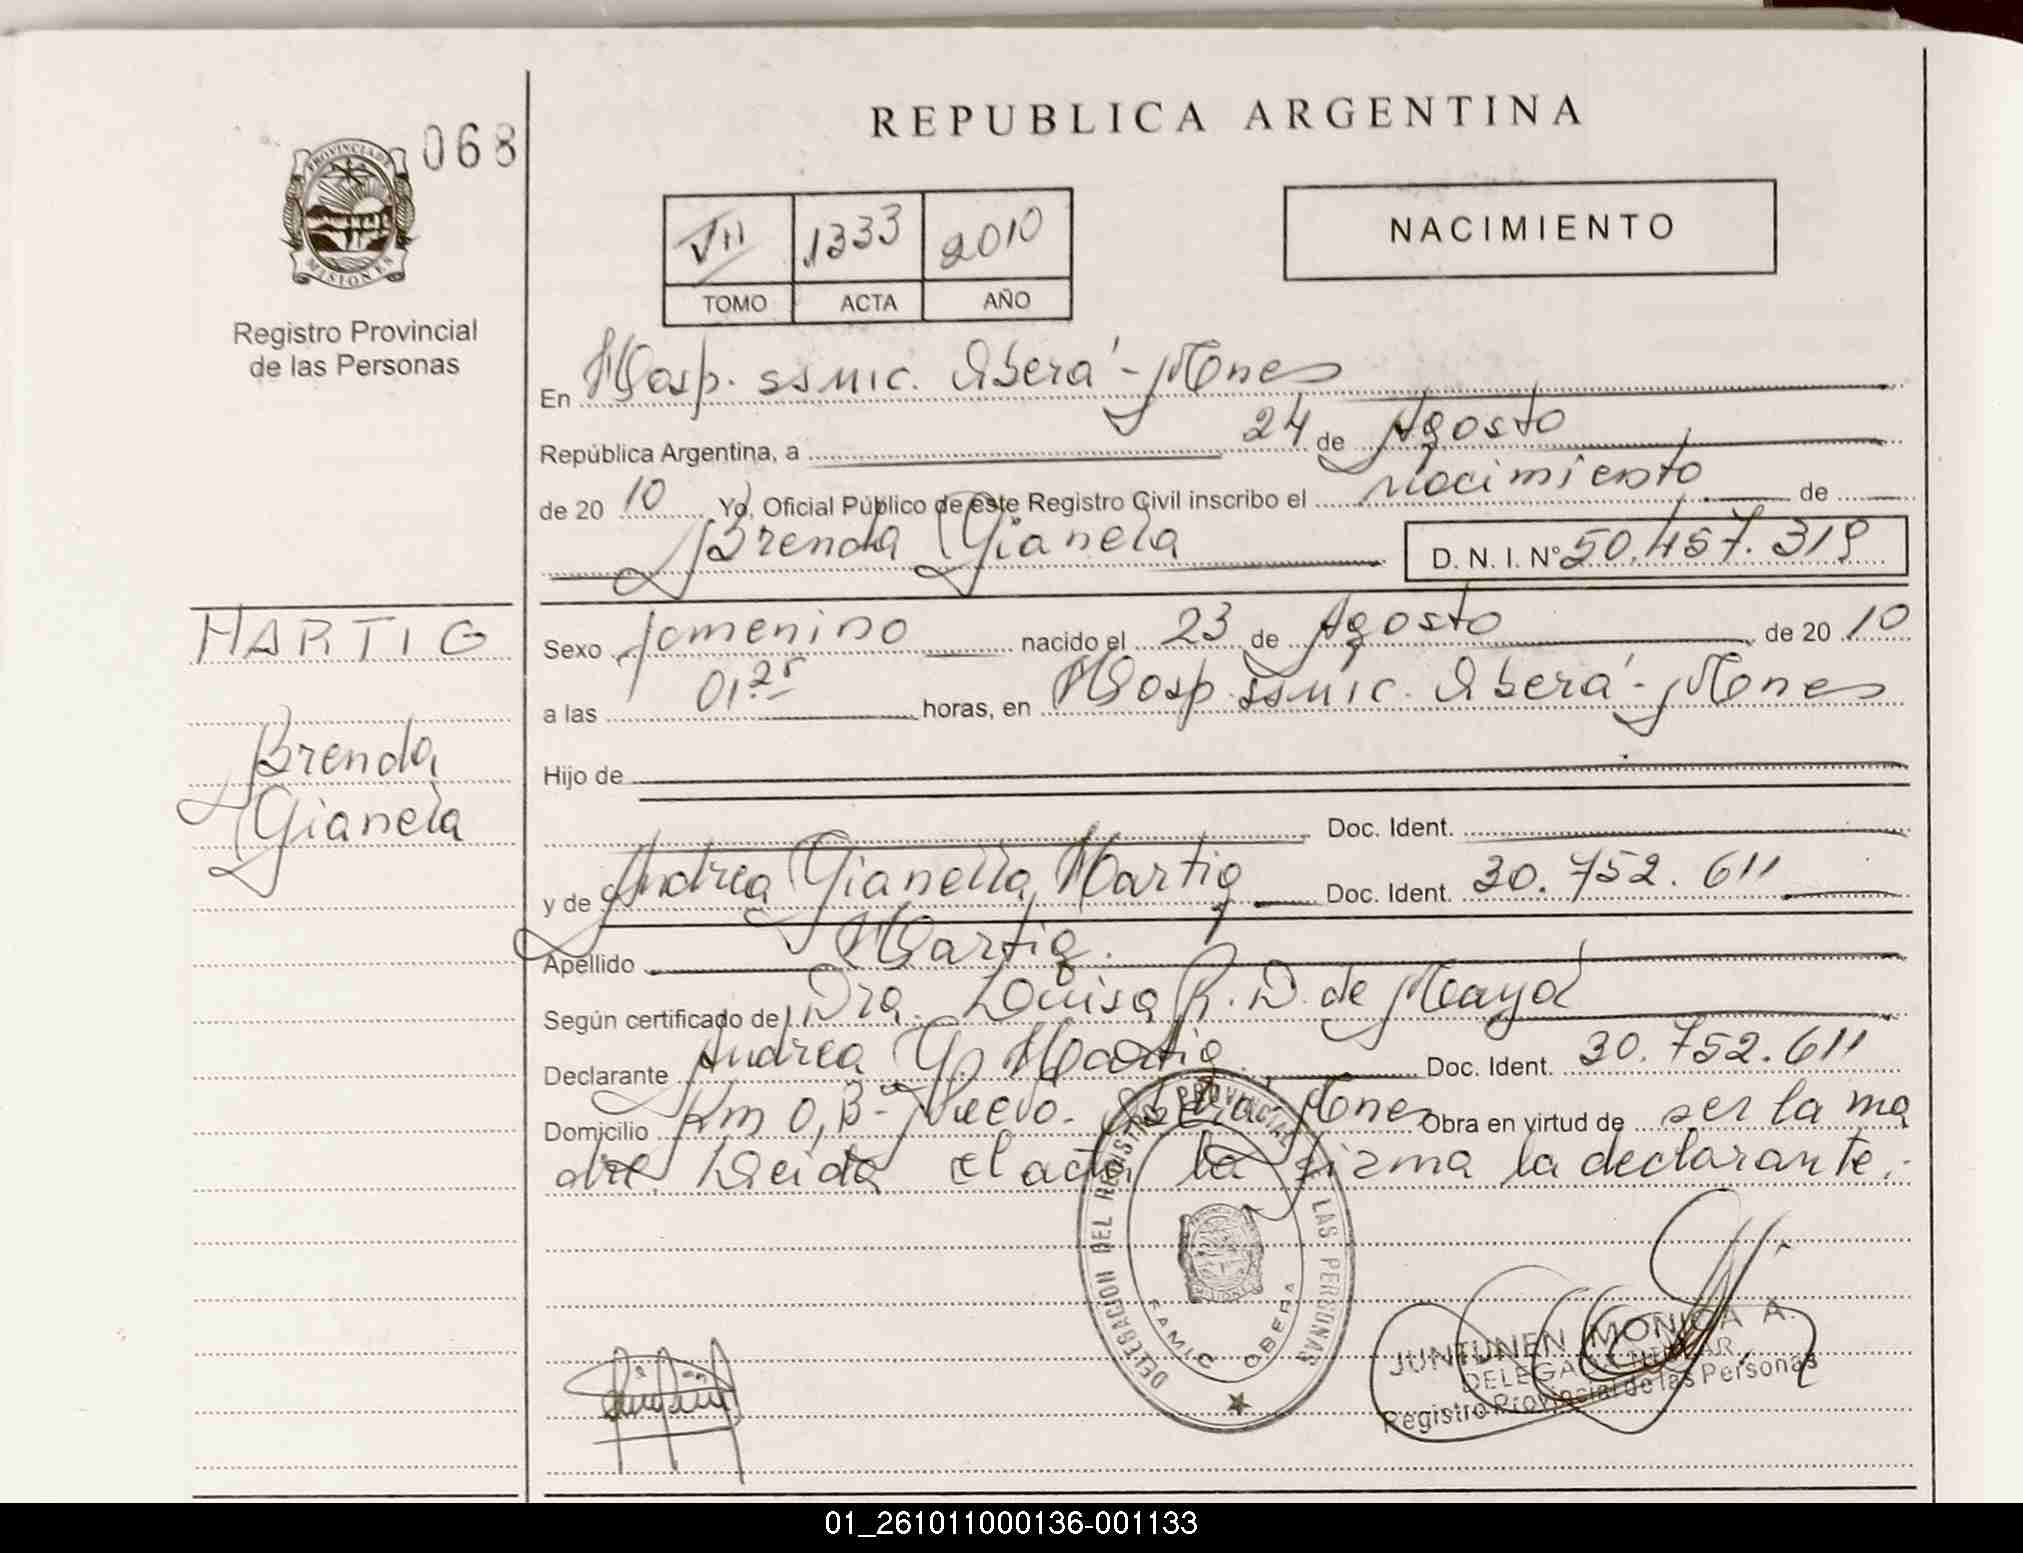 068
REPUBLICA ARGENTINA
PROVINCIA DE
MISIONES
VII 1333 2010
TOMO ACTA AÑO
NACIMIENTO
Registro Provincial
de las Personas
En Hosp. ssmic. Oberá - Mnes
República Argentina, a 24 de Agosto
de 20 10 Yo, Oficial Público de este Registro Civil inscribo el Nacimiento de
Brenda Gianela D. N. I. Nº 50.457.319
HARTIG
Brenda
Gianela
Sexo femenino nacido el 23 de Agosto de 20 10
a las 01.25 horas, en Hosp. ssmic. Oberá - Mnes
Hijo de
Doc. Ident.
y de Andrea Gianella Hartig Doc. Ident. 30.752.611
Apellido Hartig.
Según certificado de Dra. Louisa R. D. de Mayol
Declarante Andrea G. Hartig Doc. Ident. 30.752.611
Domicilio Km 0, Bº Nuevo - Oberá, Mnes Obra en virtud de ser la ma
dre. Leida el acta la firma la declarante.-
DELEGACION DEL REGISTRO PROVINCIAL LAS PERSONAS
OBERA
JUNTUNEN MONICA A.
Registro Provincial de las Personas
01_261011000136-001133